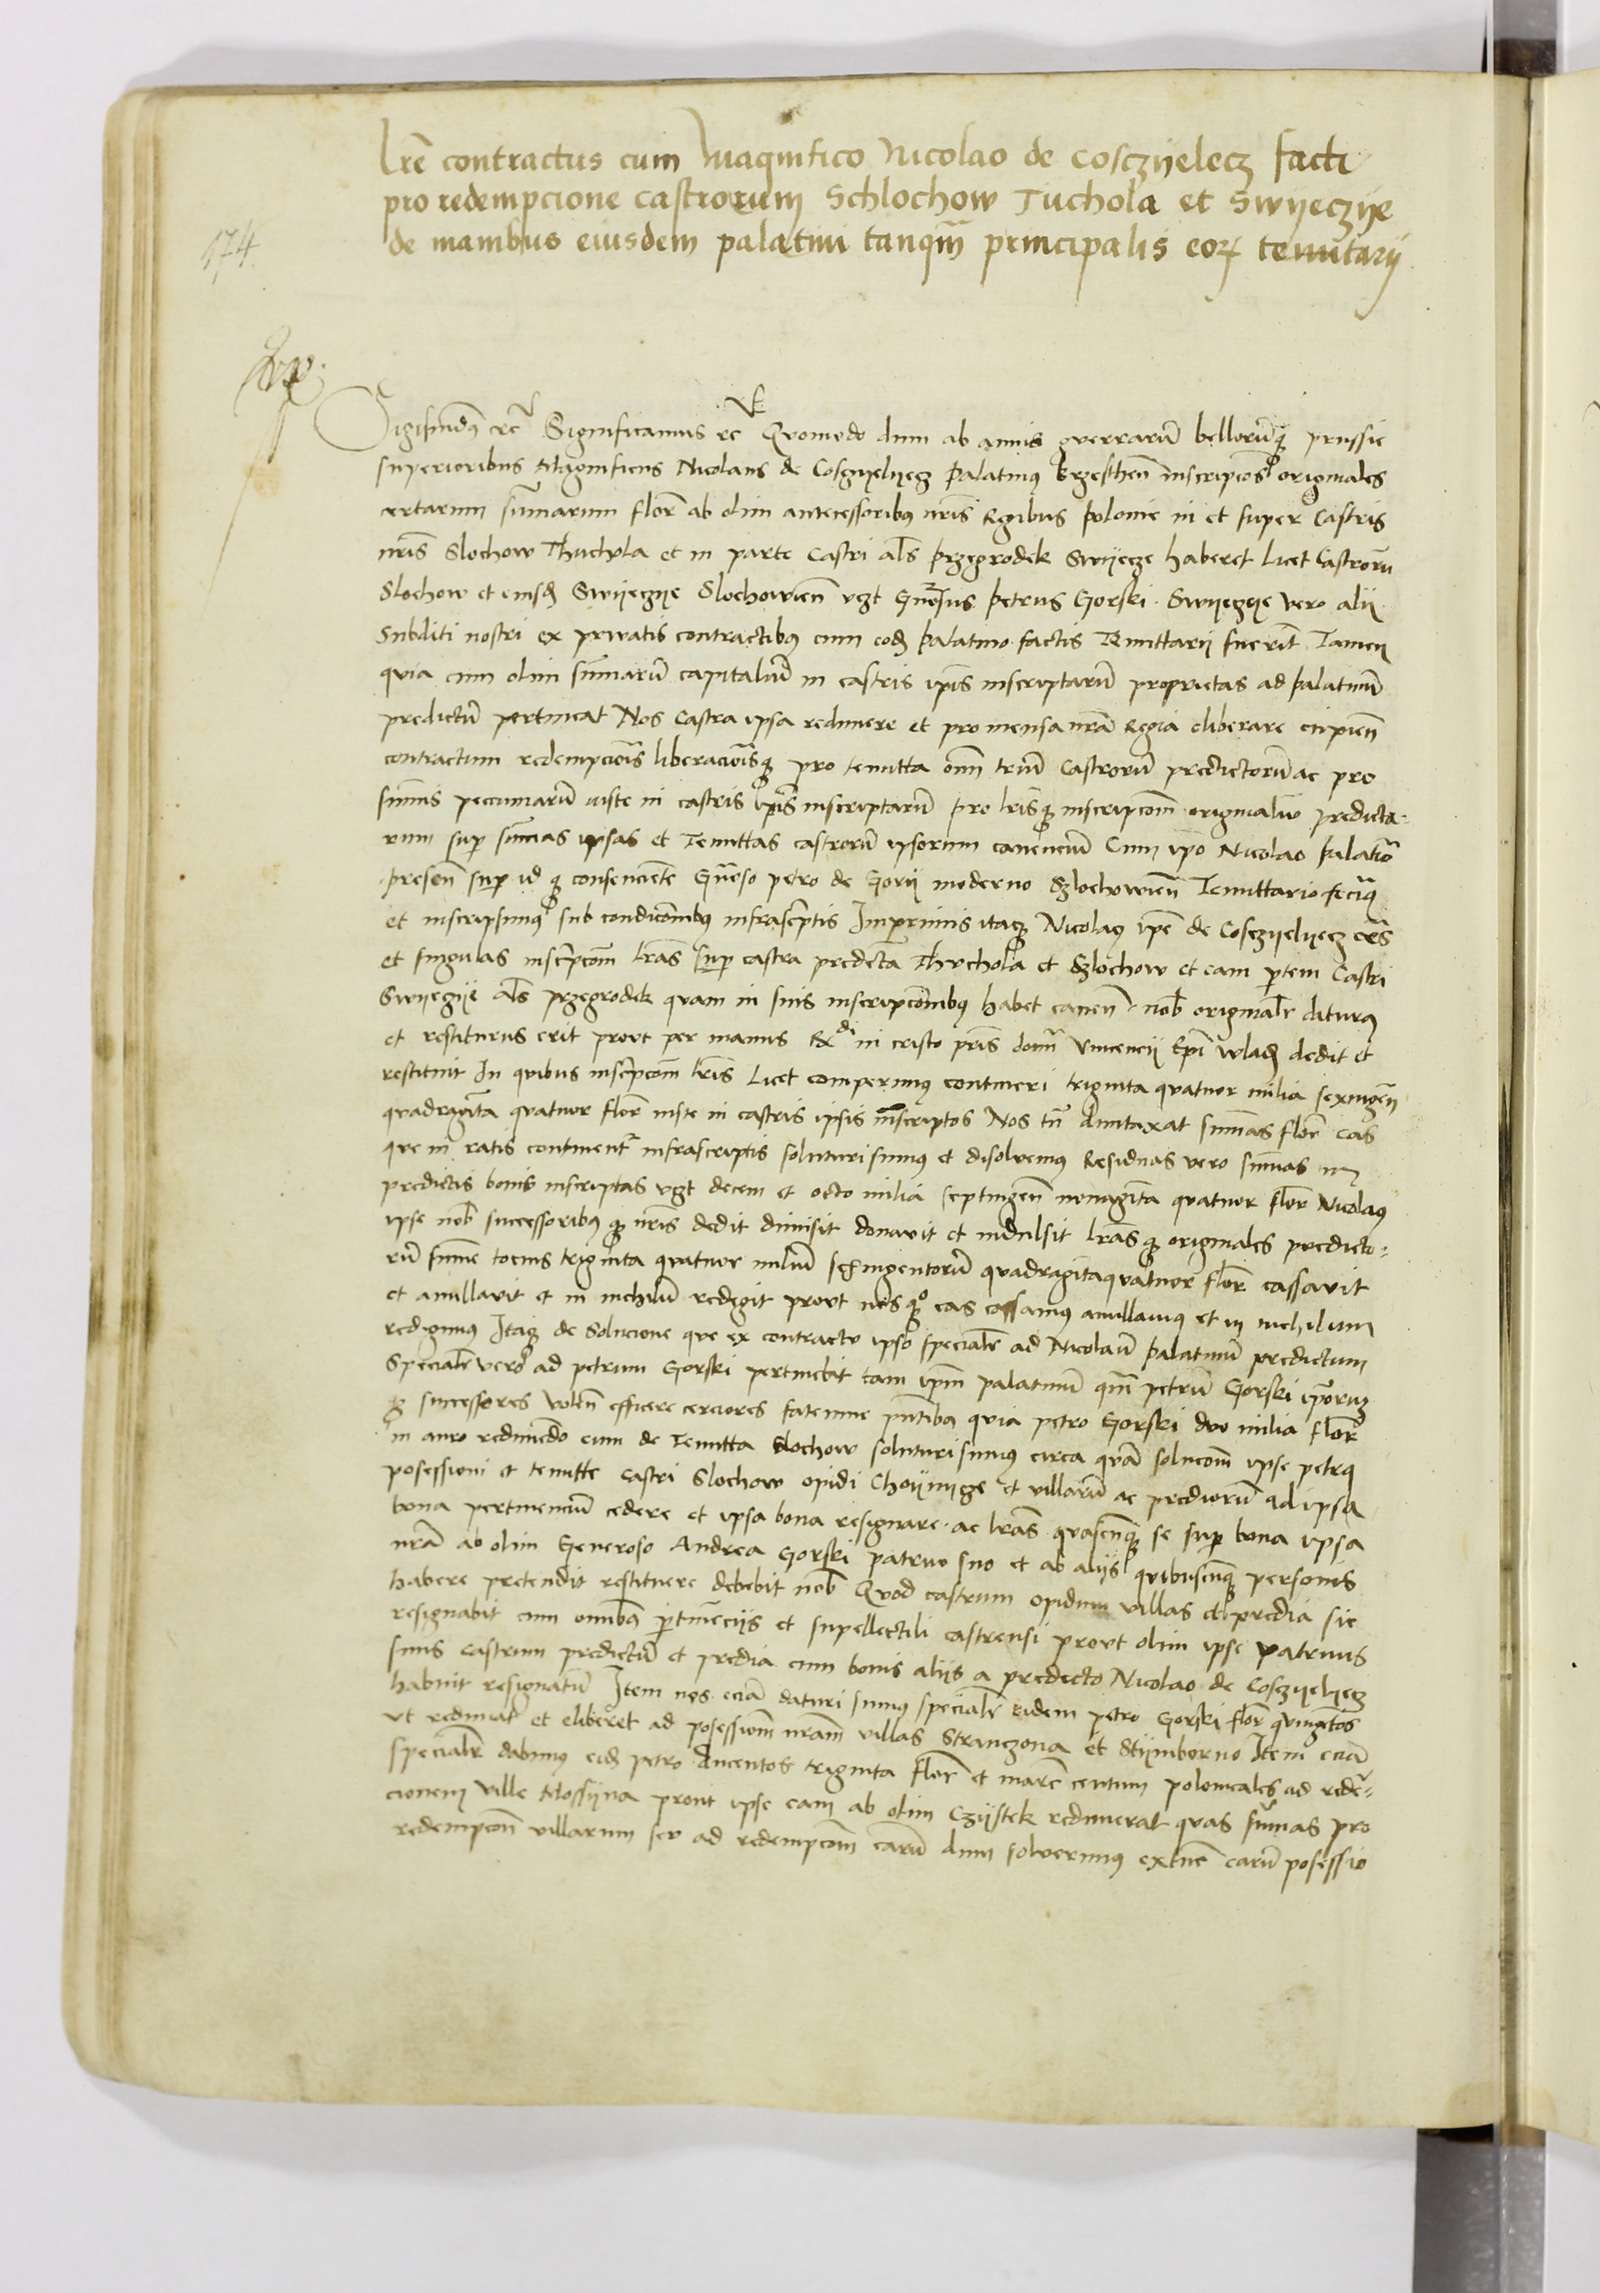 Lre contractus cum Magnifico Nicolao de Cosczyelecz facti
pro redempcione Castrorum Schlochow Tuchola et Swyeczye
de manibus eiusdem palatini tanqm principalis eor tenutarij
174
Sigismdus etc Significamus etc Quomodo dum ab annis gverrarum bellorumq prussie
superioribus Magnificus Nicolaus de Cosczyelyecz Palatinus Brzesthen inscripcões originales
certarum summarum florr ab olim antecessoribus nris Regibus Polonie in et super Castris
nris Slochow Thuchola et in parte Castri als Przegrodek Swyecze haberet Licet Castrorum
Slochow et eiusd Swyeczye Slochowien vzt Gnosus Petrus Gorski Swyeczye vero alii
Subditi nostri ex privatis contractibus cum eod Palatino factis Tenuttarii fuerint Tamen
quia cum olim summarum capitalium in castris ipis inscriptarum proprietas ad Palatinum
predictum pertineat Nos Castra ipsa redimere et pro mensa nra Regia eliberare cupien
contractum redempcionis liberacionisq pro tenutta omn trium Castrorum predictorum ac pro
summis pecuniarum iuste in castris ipis inscriptarum pro lrisq inscripcom originalium predicta
rum sup summas ipsas et Tenuttas castrorum ipsorum canencium Cum ipo Nicolao Palatino
presen sup id q consenciente Gnoso petro de Gorii moderno Szlochowien Tenuttario fecimus
et inscripsimus sub condicionibus infrascriptis Imprimis itaq Nicolaus ipe de Cosczyelyecz oes
et singulas inscripcom lras sup castra predicta Thuchola et Szlochow et eam partem Castri
Swyeczye als Przegrodek quam in suis inscripcionibus habet canen nob originaler daturus
et restiturus erit prout per manus Rdi in cristo pris domi Vincencii Epi Wlad dedit et
restituit In quibus inscripcom lris Licet comperimus contineri triginta quatuor milia sexingen
quadraginta quatuor florr iuste in castris ipsis inscriptos Nos tn duntaxat summas florr eas
que in ratis continentur infrascriptis soluturi sumus et disolvemus Residuas vero summas in
predictis bonis inscriptas vzt decem et octo milia septingen nonaginta quatuor florr Nicolaus
ipse nob successoribusq nris dedit dimisit donavit et indulsit lrasq originales predicto
rum summe tocius triginta quatuor milium sexingentorum quadragintaquatuor florr cassavit
et anullavit et in nichilum redegit prout nos q eas cassamus anullamus et in nichilum
redigimus Itaq de Solucione que ex contractu ipso specialr ad Nicolaum Palatinum predictum
Specialr vero ad petrum Gorski pertinebit tam ipm palatinum qm petrum Gorski iporum
q successores volen efficere cerciores fatemur pntibus quia petro Gorski duo milia florr
in auro redimendo eum de Tenutta Slochow soluturi sumus circa qua solucom ipse petrus
posessioni et tenutte Castri Slochow opidi Choynycze et villarum ac prediorum ad ipsa
bona pertinencium cedere et ipsa bona resignare ac lras quascunq se sup bona ipsa
nra ab olim Generoso Andrea Gorski patruo suo et ab aliis quibuscunq personis
habere pretendit restituere debebit nob Quod castrum opidum villas et predia sic
resignabit cum omnibus ptinenciis et supellectili castrensi prout olim ipse patruus
suus castrum predictum et predia cum bonis aliis a predicto Nicolao de Cosczyelyecz
habuit resignatum Item nos eciam daturi sumus specialr eidem petro Gorski florr quingentos
ut redimat et eliberet ad posessionem nram villas Stranczona et Stymborno Item eciam
specialr dabimus eid petro ducentos triginta florr et marc centum polonicales ad redem
cionem ville Mossyna prout ipse eam ab olim Czystek redimerat quas summas pro
redempcion villarum seu ad redempcom earum dum solverimus extunc earum posessio